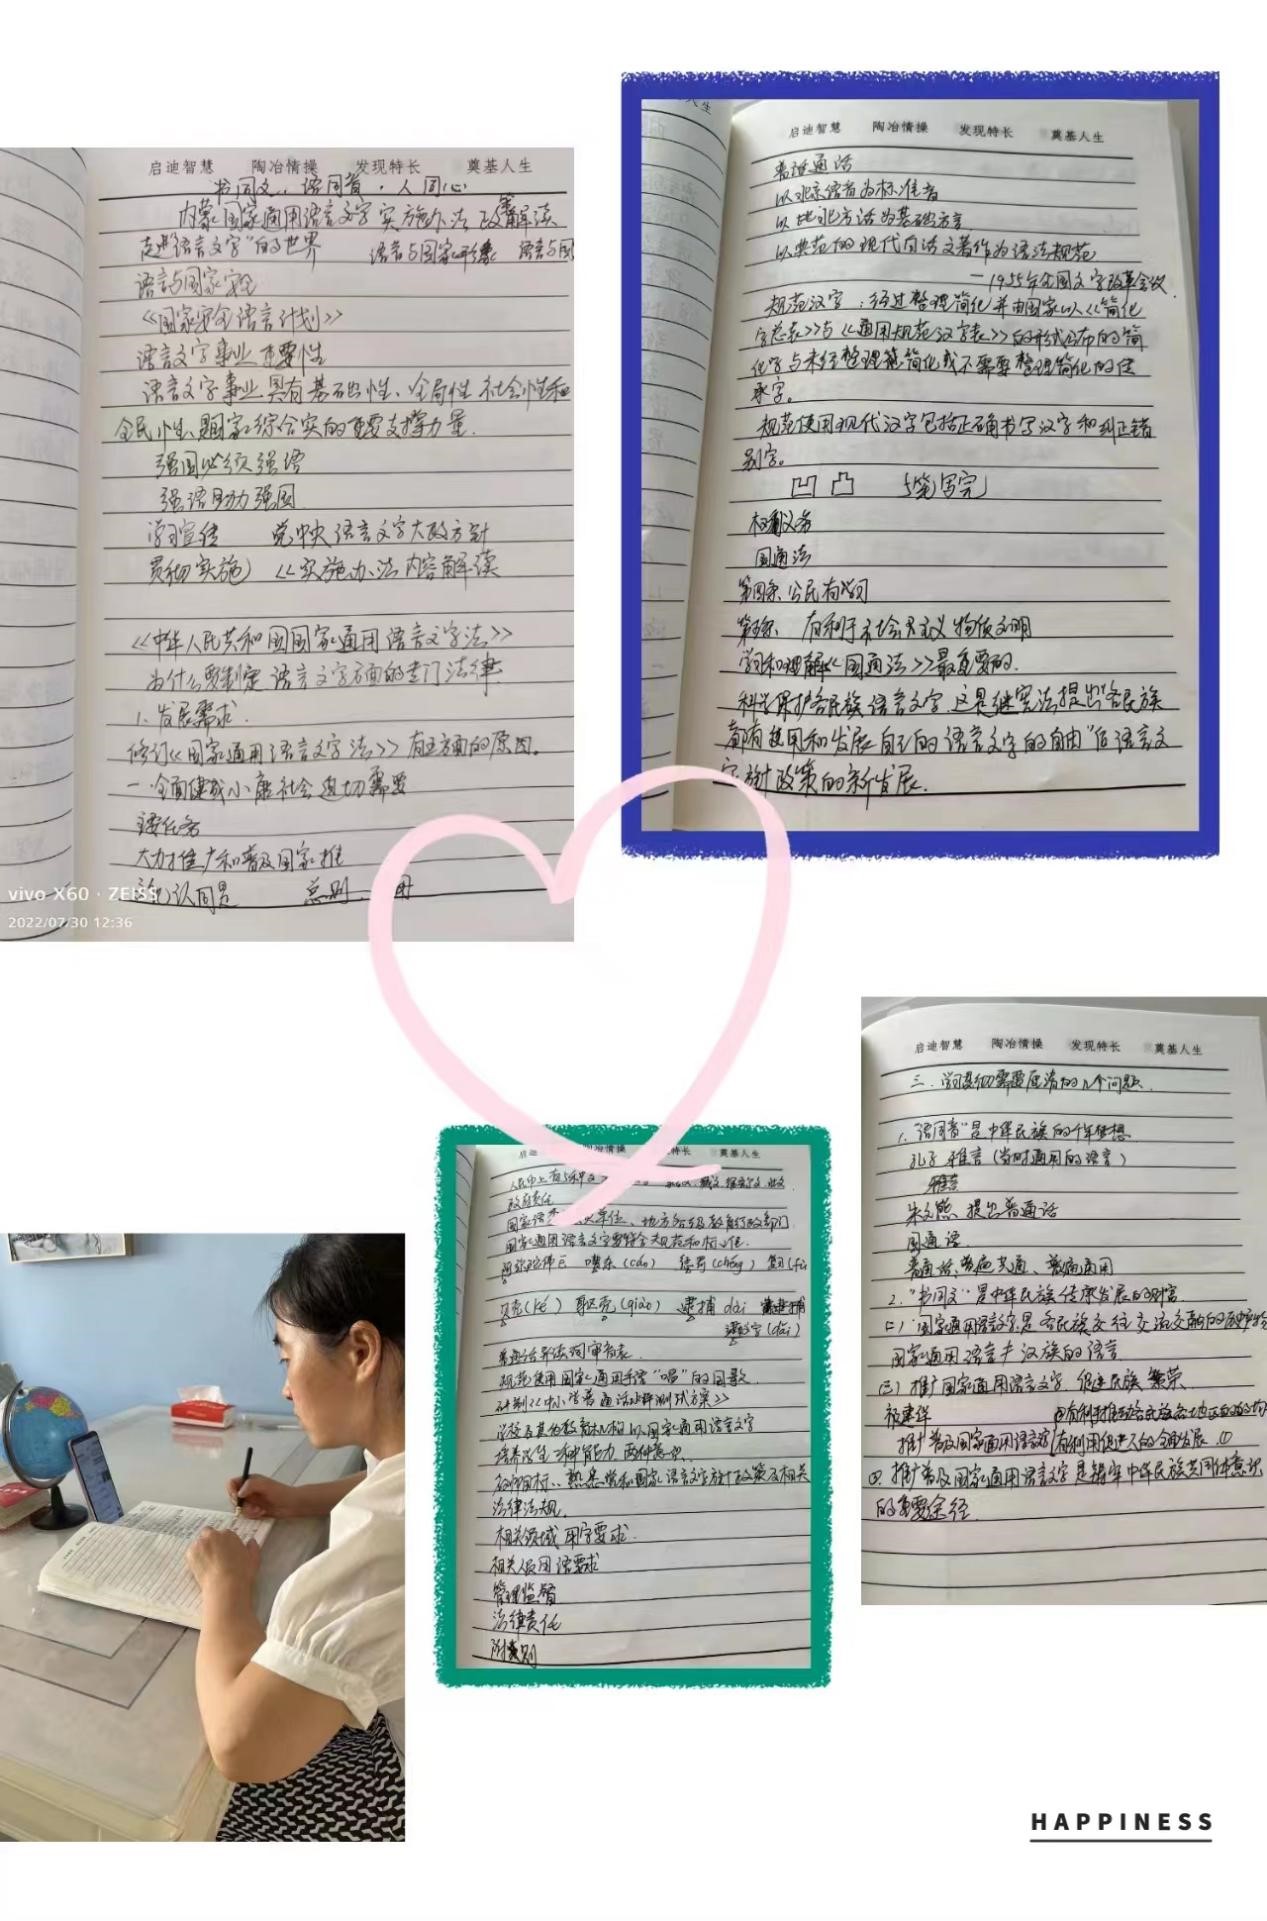 启迪智慧 陶冶情操 发现特长 奠基人生
书同文、语同音、人同心
内蒙国家通用语言文字实施办法 解读
走进"语言文字"的世界 语言与国家形象 语言与国
语言与国家安全
《国家安全语言计划》
语言文字事业重要性
语言文字事业具有基础性、全局性 社会性和
全民性、是国家综合实的重要支撑力量.
强国必须强语
强语助力强国
学习宣传 党中央语言文字大政方针
贯彻实施 《实施办法内容解读
《中华人民共和国国家通用语言文字法》
为什么要制定语言文字方面的专门法律
1.发展需求.
修订《国家通用语言文字法》有三方面的原因。
一.全面建成小康社会迫切需要
主要任务
大力推广和普及国家推
认同是 总则、用
vivo X60 · ZEISS
2022/07/30 12:36
人生
启迪智慧 陶冶情操 发现特长 奠基人生
普通话
以北京语音为标准音
以北方话为基础方言
以典范的现代白话文著作为语法规范
—1955年全国文字改革会议.
规范汉字：经过整理简化并由国家以《简化
字总表》与《通用规范汉字表》的形式公布的简
化字与未经整理简化或不需要整理简化的传
承字。
规范使用现代汉字包括正确书写汉字和纠正错
别字。
凹 凸 5笔写完
权利义务
国通法
第四条 公民有学习
第五条 有利于社会主义物质文明
学习和理解《国通法》最重要的.
科学保护各民族语言文字,这是继宪法提出"各民族
都有使用和发展自己的语言文字的自由"后语言文
字方针政策的新发展.
启迪 陶冶情操 特长 奠基人生
政府责任
国家语 单位、地方各级教育行政部门
国家通用语言文字要符合规范和标准.
阿弥陀佛 嘈杂(cáo)
贝壳(ké) 躯壳(qiào) 逮捕 dài
(dǎi)
普通话异读词审音表.
规范使用国家通用手语"唱"的国歌.
研制《中小学普通话水平测试方案》
学校及其他教育机构以国家通用语言文字
培养学生三种能力 两种意识.
熟悉党和国家语言文字方针政策及相关
法律法规.
相关领域用字要求.
相关人员用语要求
管理监督
法律责任
附则
启迪智慧 陶冶情操 发现特长 奠基人生
三.学习贯彻需要厘清的几个问题.
1."语同音"是中华民族的千年梦想.
孔子 雅言(当时通用的语言)
朱文熊 提出普通话
国通语.
普通话:普遍共通、普遍通用
2."书同文"是中华民族传承发展的财富.
(二)国家通用语言文字是各民族交往交流交融的历史
国家通用语言≠汉族的语言.
(三)推广国家通用语言文字,促进民族繁荣.
推广普及国家通用语言文字有利用促进人的全面发展.①
③.推广普及国家通用语言文字是铸牢中华民族共同体意识
的重要途径.
HAPPINESS